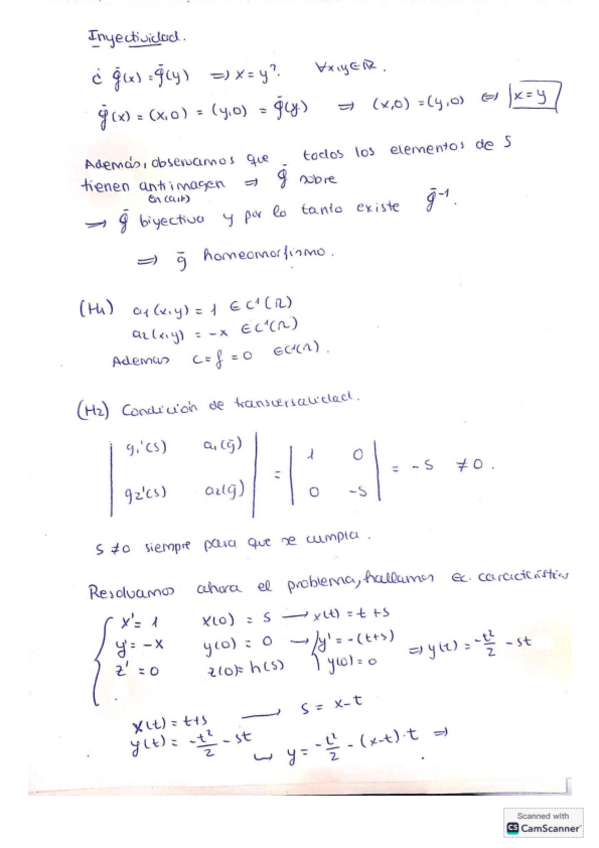 Inyectividad.
¿ ḡ(x) = ḡ(y) ⟹ x = y?. ∀x,y∈ℝ.
ḡ(x) = (x,0) = (y,0) = ḡ(y) ⟹ (x,0) = (y,0) ⟺ x = y
Además, observamos que todos los elementos de S
tienen antimagen ⟹ ḡ sobre
⟹ ḡ biyectiva y por lo tanto existe ḡ⁻¹.
⟹ ḡ homeomorfismo.
(H1) a1(x,y) = 1 ∈ C¹(Ω)
a2(x,y) = -x ∈ C¹(Ω)
Ademas c = f = 0 ∈ C¹(Ω).
(H2) Condición de transversalidad.
| g1'(s) a1(ḡ) | = | 1 0 | = -s ≠ 0.
| g2'(s) a2(ḡ) | | 0 -s |
s ≠ 0 siempre para que se cumpla.
Resolvamos ahora el problema, hallamos ec. característica
x' = 1 x(0) = s → x(t) = t + s
y' = -x y(0) = 0 → { y' = -(t+s) y(0) = 0 ⟹ y(t) = -t²/2 - st
z' = 0 z(0) = h(s)
x(t) = t+s → s = x-t
y(t) = -t²/2 - st
↳ y = -t²/2 - (x-t)·t ⟹
Scanned with
CS CamScanner